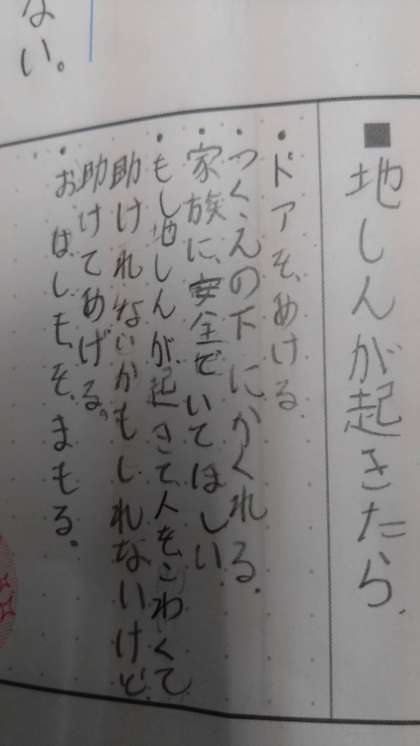 ■地しんが起きたら
・ドアをあける
・つくえの下にかくれる。
・家族に、安全でいてほしい
・もし地しんが起きて人をこわくて
助けれないかもしれないけど
助けてあげる。
・おはしもをまもる。
ない。